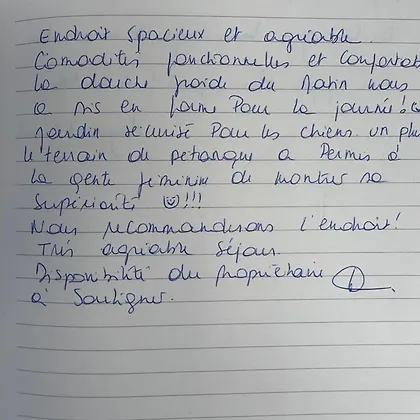 Endroit spacieux et agréable.
Comodités fonctionnelles et confortab
La douche froide du matin nous
a mis en forme pour la journée!
Jardin sécurisé pour les chiens. un plu
le terrain de petanque a permis à
la gente féminine de montrer sa
supériorité !!!
Nous recommanderons l'endroit!
Très agréable séjour.
Disponibilité du propriétaire
à souligner.